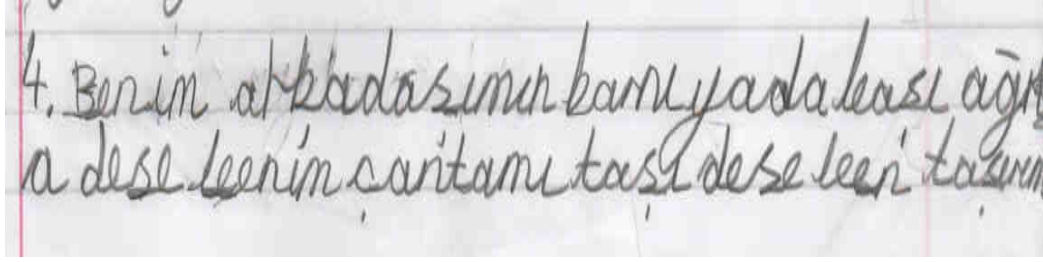 4. Benim arkadasımın karnı yada kası ağrı
a dese benim çantamı taşı dese ben taşırım